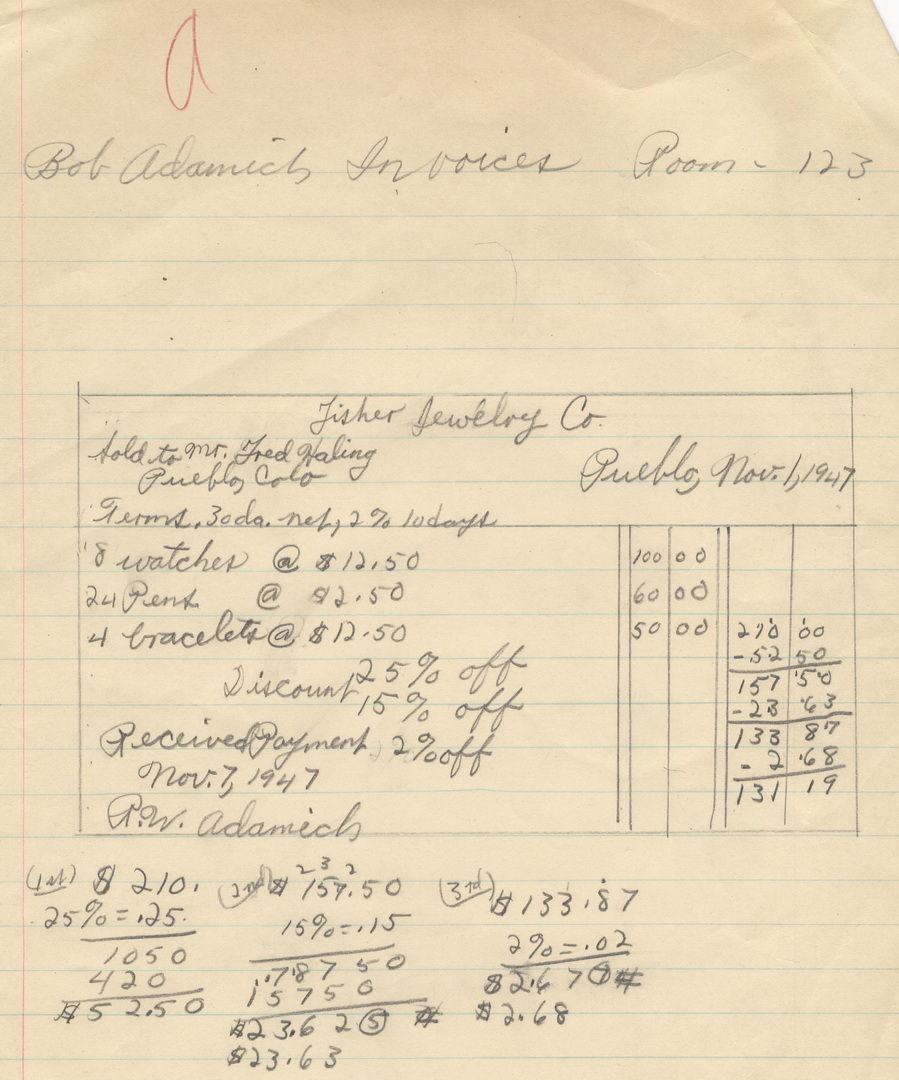 a
Bob Adamich Invoices Room - 123
Fisher Jewelry Co.
Sold to Mr. Fred Haling
Pueblo, Colo
Pueblo, Nov. 1, 1947
Terms, 30 da. net, 2% 10 days
8 watches @ $12.50 100 00
24 Pens @ $2.50 60 00
4 bracelets @ $12.50 50 00 210 00
-52 50
Discount 25% off 157 50
15% off -23 63
Received Payment, 2% off 133 87
Nov. 7, 1947 - 2 68
131 19
R.W. Adamich
(1st) $ 210.
25% = .25
1050
420
$52.50
(2nd) $ 157.50
2 3 2
15% = .15
78750
15750
$23.625
$23.63
(3rd) $133.87
2% = .02
$2.67
$2.68